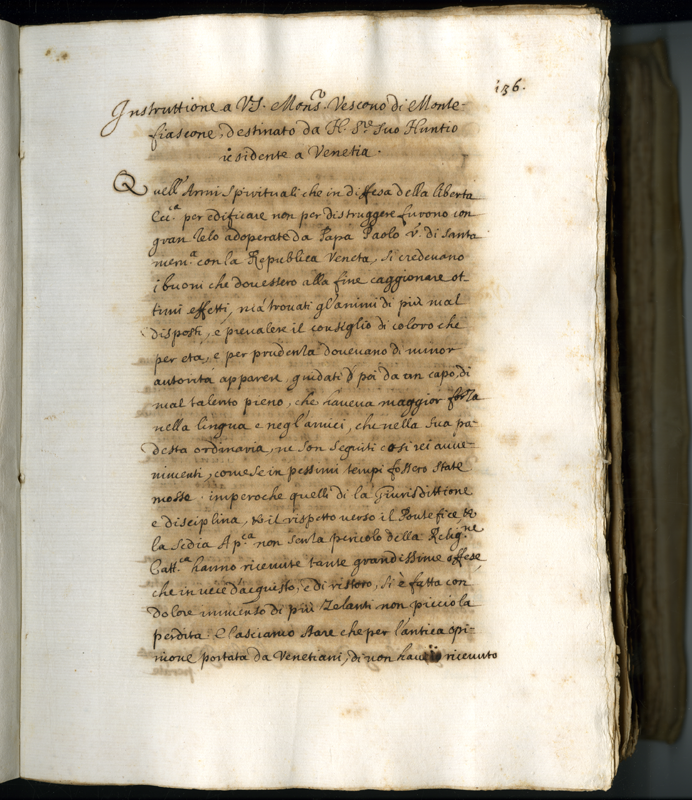 136.
Instruttione a VS. Mons.r Vescovo di Monte-
fiascone, destinato da N. S.re suo Nuntio
residente a Venetia.
Quell'Armi spirituali che in diffesa della libertà
Ecc.ca per edificare non per distruggere furono con
gran zelo adoperate da Papa Paolo V. di Santa
mem.a con la Republica Veneta, si credevano
i buoni che dovessero alla fine caggionare ot-
timi effetti, mà trovati gl'animi di più mal
disposti, e prevalere il consiglio di coloro che
per età, e per prudenza dovevano di minor
autorità apparere, guidati poi da un capo, di
mal talento pieno, che haveva maggior forza
nella lingua e negl'amici, che nella sua pa-
desta ordinaria, ne son seguiti cosi rei avve-
nimenti, come se in pessimi tempi fossero state
mosse. imperoche quelli di la Giurisdittione
e disciplina, et il rispetto verso il Pontefice et
la Sedia Ap.ca non senza pericolo della Relig.ne
Catt.ca hanno ricevute tante grandissime offese
che in vece d'acquisto, e di ristoro, si è fatta con
dolore immenso di più zelanti non picciola
perdita. E lasciamo stare che per l'antica opi-
nione portata da Venetiani, di non haver ricevuto